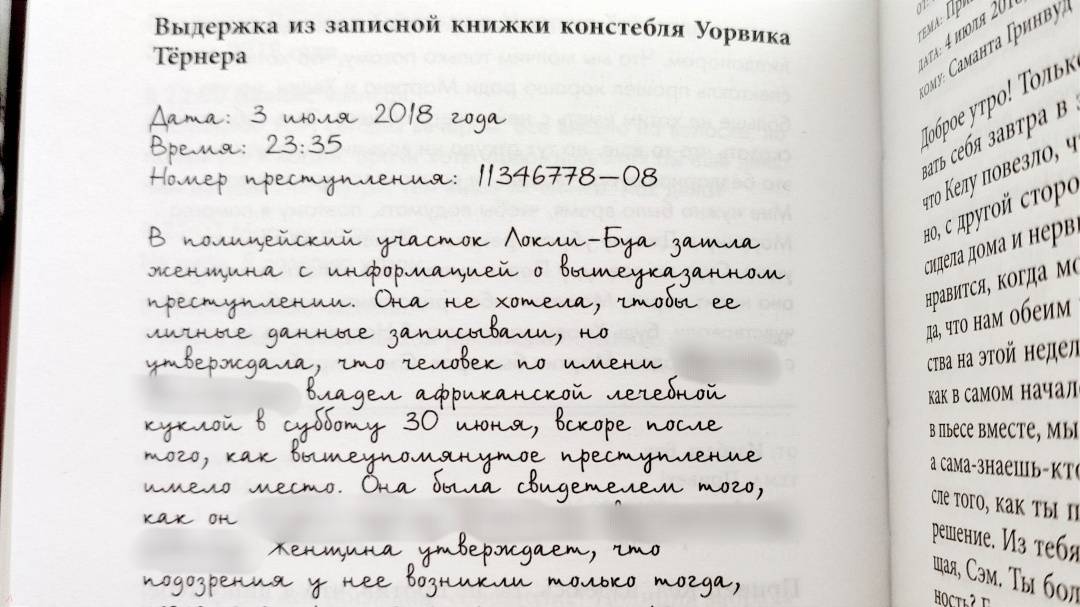 Выдержка из записной книжки констебля Уорвика
Тёрнера
Дата: 3 июля 2018 года
Время: 23:35
Номер преступления: 11346778—08
В полицейский участок Локли-Буа зашла
женщина с информацией о вышеуказанном
преступлении. Она не хотела, чтобы ее
личные данные записывали, но
утверждала, что человек по имени
владел африканской лечебной
куклой в субботу 30 июня, вскоре после
того, как вышеупомянутое преступление
имело место. Она была свидетелем того,
как он
Женщина утверждает, что
подозрения у нее возникли только тогда,
ОТ:
ТЕМА:
ДАТА: 4 июля 2018
КОМУ: Саманта Гринвуд
Доброе утро! Только
вать себя завтра в
что Келу повезло,
но, с другой сторо
сидела дома и нерв
нравится, когда мо
да, что нам обеим
ства на этой недел
как в самом начал
в пьесе вместе, мы
а сама-знаешь-кт
сле того, как ты п
решение. Из тебя
щая, Сэм. Ты бол
ность?